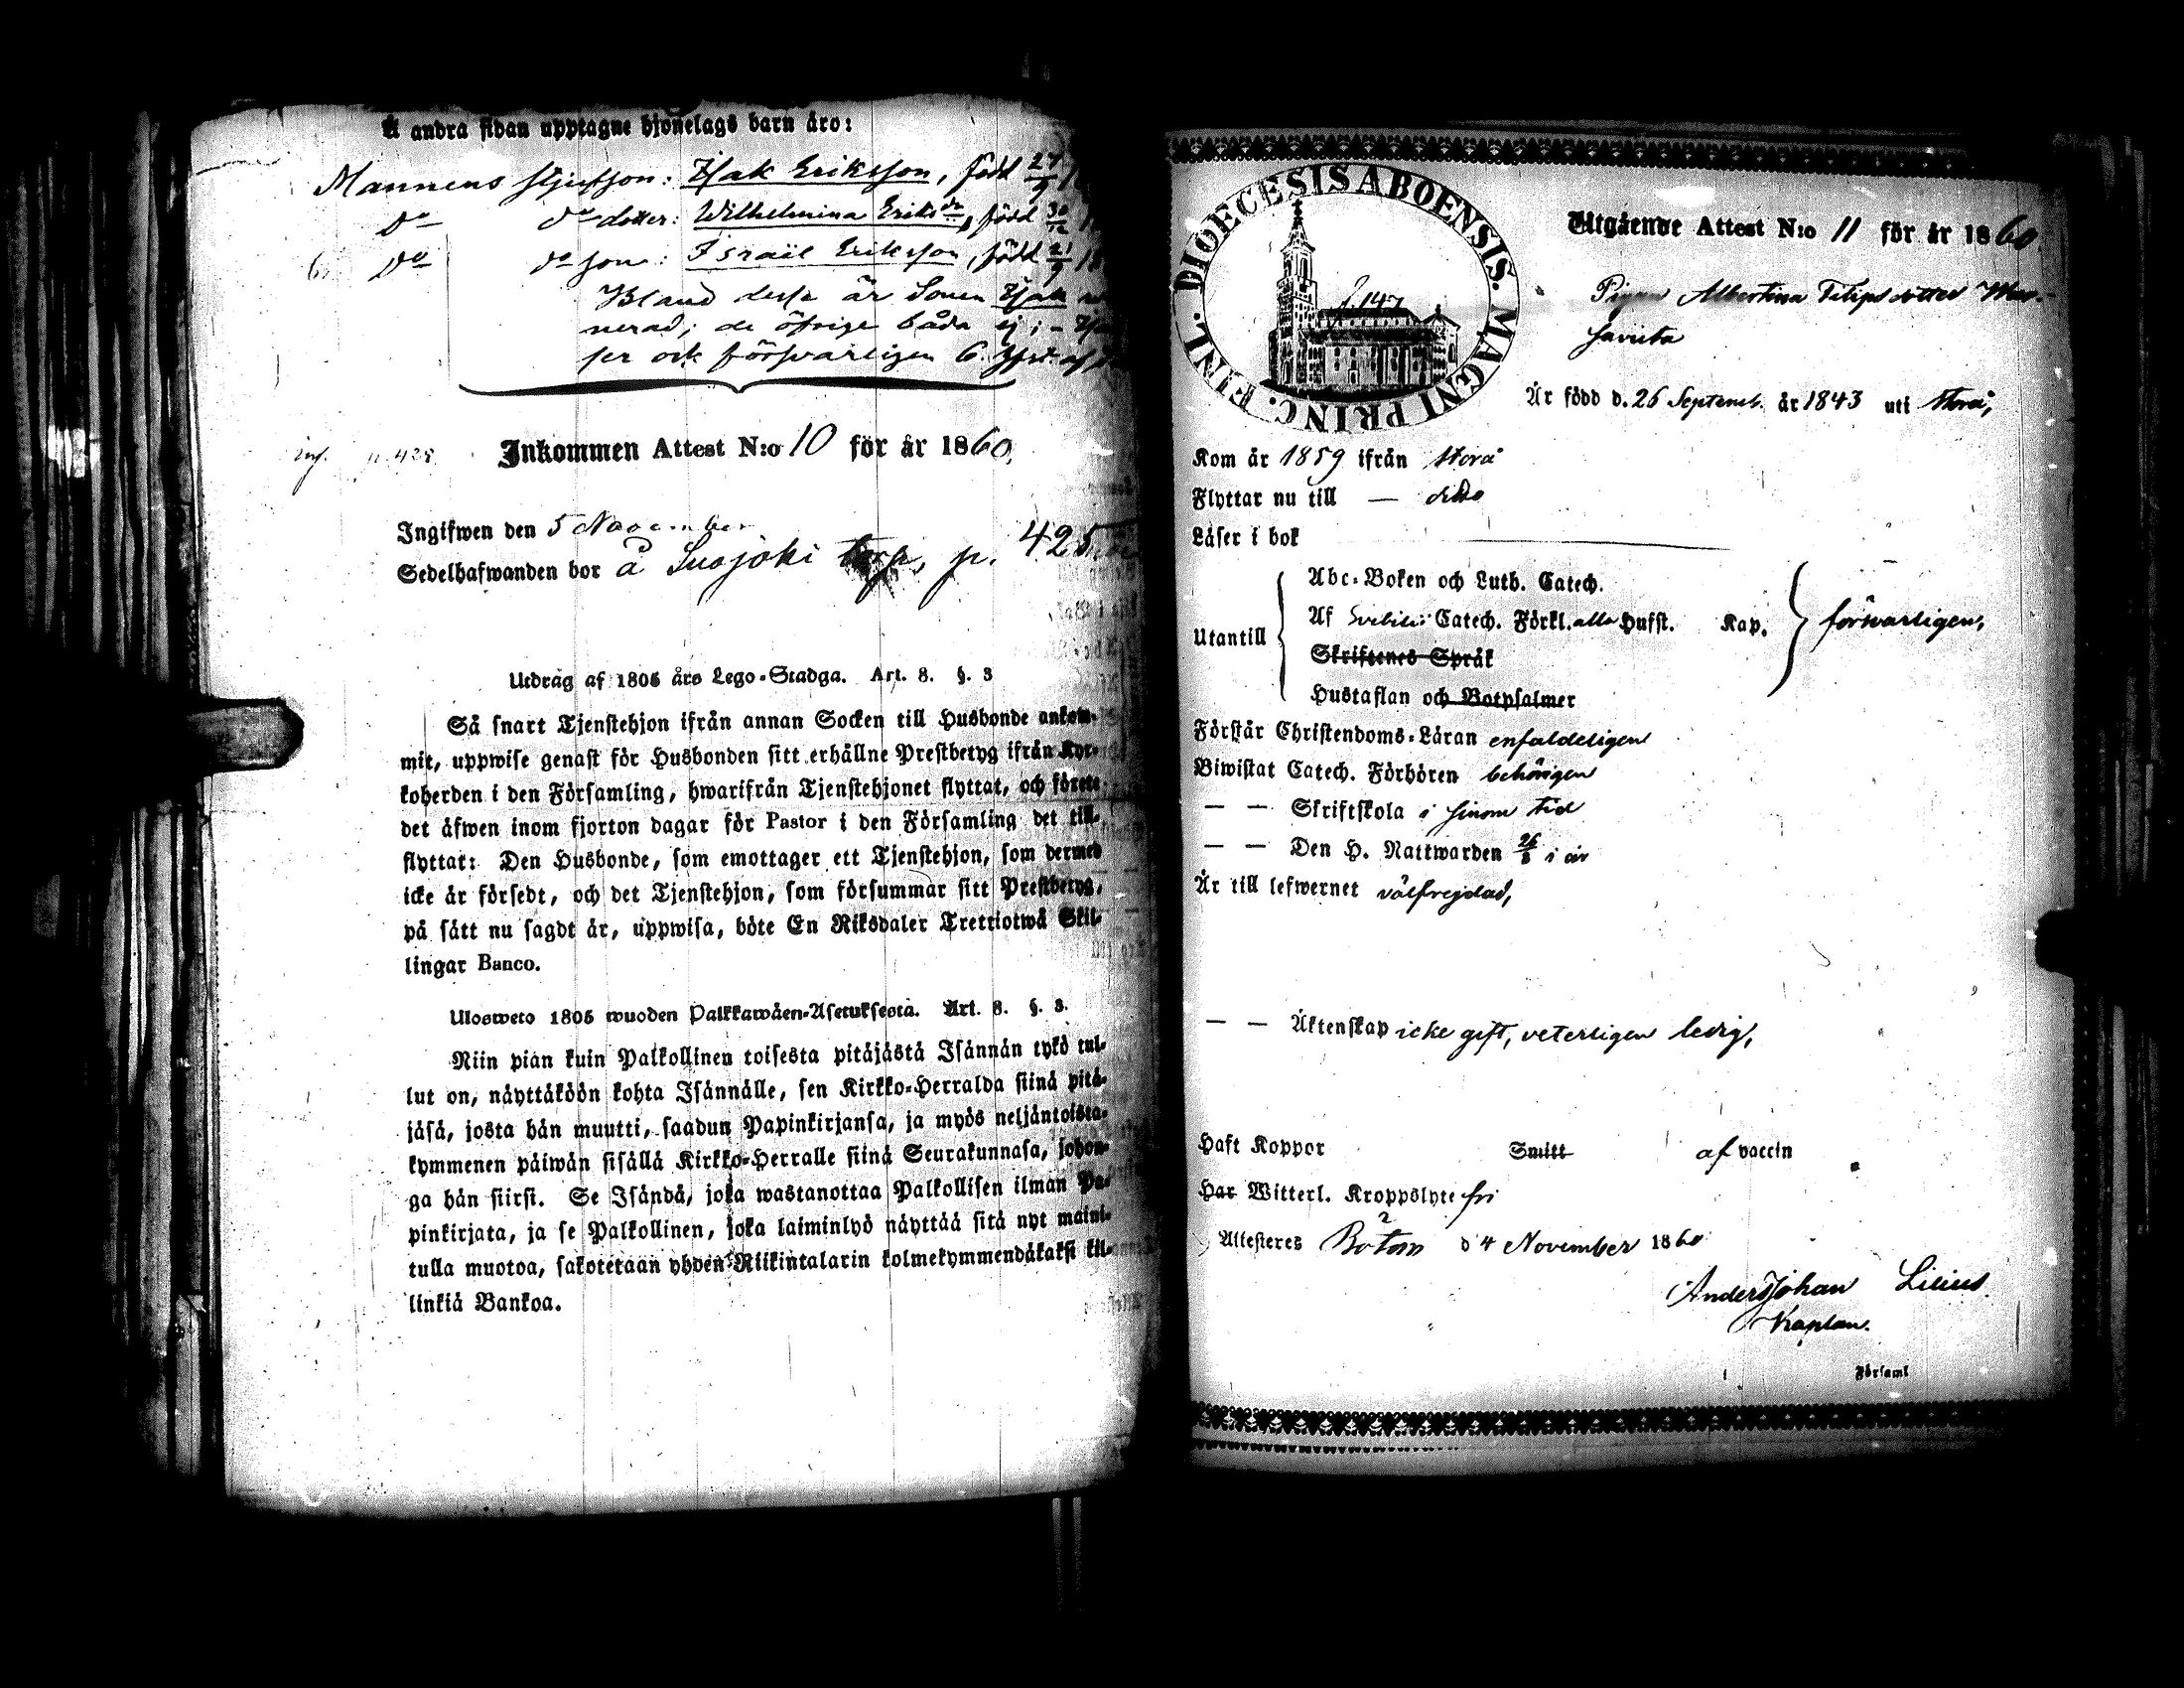 Å andra sidan upptagne hjonelags barn äro:
Mannens stjufson: Isak Eriksson, född 27/9
Do do dotter: Wilhelmina Eriksdr, född 30/12
6. Do do son: Israël Eriksson, född 21/9 18
Bland dessa är Sonen Isak
nerad; de öfrige båda ej; -
ser och försvarligen
Inkommen Attest N:o 10 för år 1860.
Ingifwen den 5 November
Sedelhafwanden bor å Suojoki torp, p. 425
Utdrag af 1805 års Lego-Stadga. Art. 8. §. 3
Så snart Tjenstehjon ifrån annan Socken till Husbonde ankom-
mit, uppwise genast för Husbonden sitt erhållne Prestbetyg ifrån Kyr-
koherden i den Församling, hwarifrån Tjenstehjonet flyttat, och förete
det äfwen inom fjorton dagar för Pastor i den Församling det till-
flyttat: Den Husbonde, som emottager ett Tjenstehjon, som dermed
icke är försedt, och det Tjenstehjon, som försummar sitt Prestbetyg,
på sätt nu sagdt är, uppwisa, böte En Riksdaler Trettiotwå Skil-
lingar Banco.
Ulosweto 1805 wuoden Palkkawäen-Asetuksesta. Art. 8. §. 3.
Niin pian kuin Palkollinen toisesta pitäjästä Isännän tykö tul-
lut on, näyttäköön kohta Isännälle, sen Kirkko-Herralda siinä pitä-
jäsä, josta hän muutti, saadun Papinkirjansa, ja myös neljäntoista-
kymmenen päiwän sisällä Kirkko-Herralle siinä Seurakunnasa, johon-
ga hän siirsi. Se Isändä, joka wastanottaa Palkollisen ilman Pa-
pinkirjata, ja se Palkollinen, joka laiminlyö näyttää sitä nyt maini-
tulla muotoa, sakotetaan yhden Riikintalarin kolmekymmendäkaksi kil-
linkiä Bankoa.
FINL. DIOECESIS ABOENSIS. MAGNI PRINC.
p. 147
Utgående Attest N:o 11 för år 1860
Pigan Albertina Filipsdotter
Är född d. 26 Septemb. år 1843 uti Storå,
Kom år 1859 ifrån Storå
Flyttar nu till — dito
Läser i bok
Utantill
Abc-Boken och Luth. Catech.
Af Svebilii Catech. Förkl. alla Hufst. Kap. försvarligen,
Skriftenes Språk
Hustaflan och Botpsalmer
Förstår Christendoms-Läran enfaldeligen
Biwistat Catech. Förhören behörigen
— — Skriftskola i sinom tid
— — Den H. Nattwarden 26/8 i år
Är till lefwernet välfrejdad,
— — Äktenskap icke gift, veterligen ledig,
Haft Koppor Smitt af vaccin
Har Witterl. Kroppslyte fri
Attesteres Bötom d 4 November 1860
Anders Johan Lilius
Kaplan.
Församl